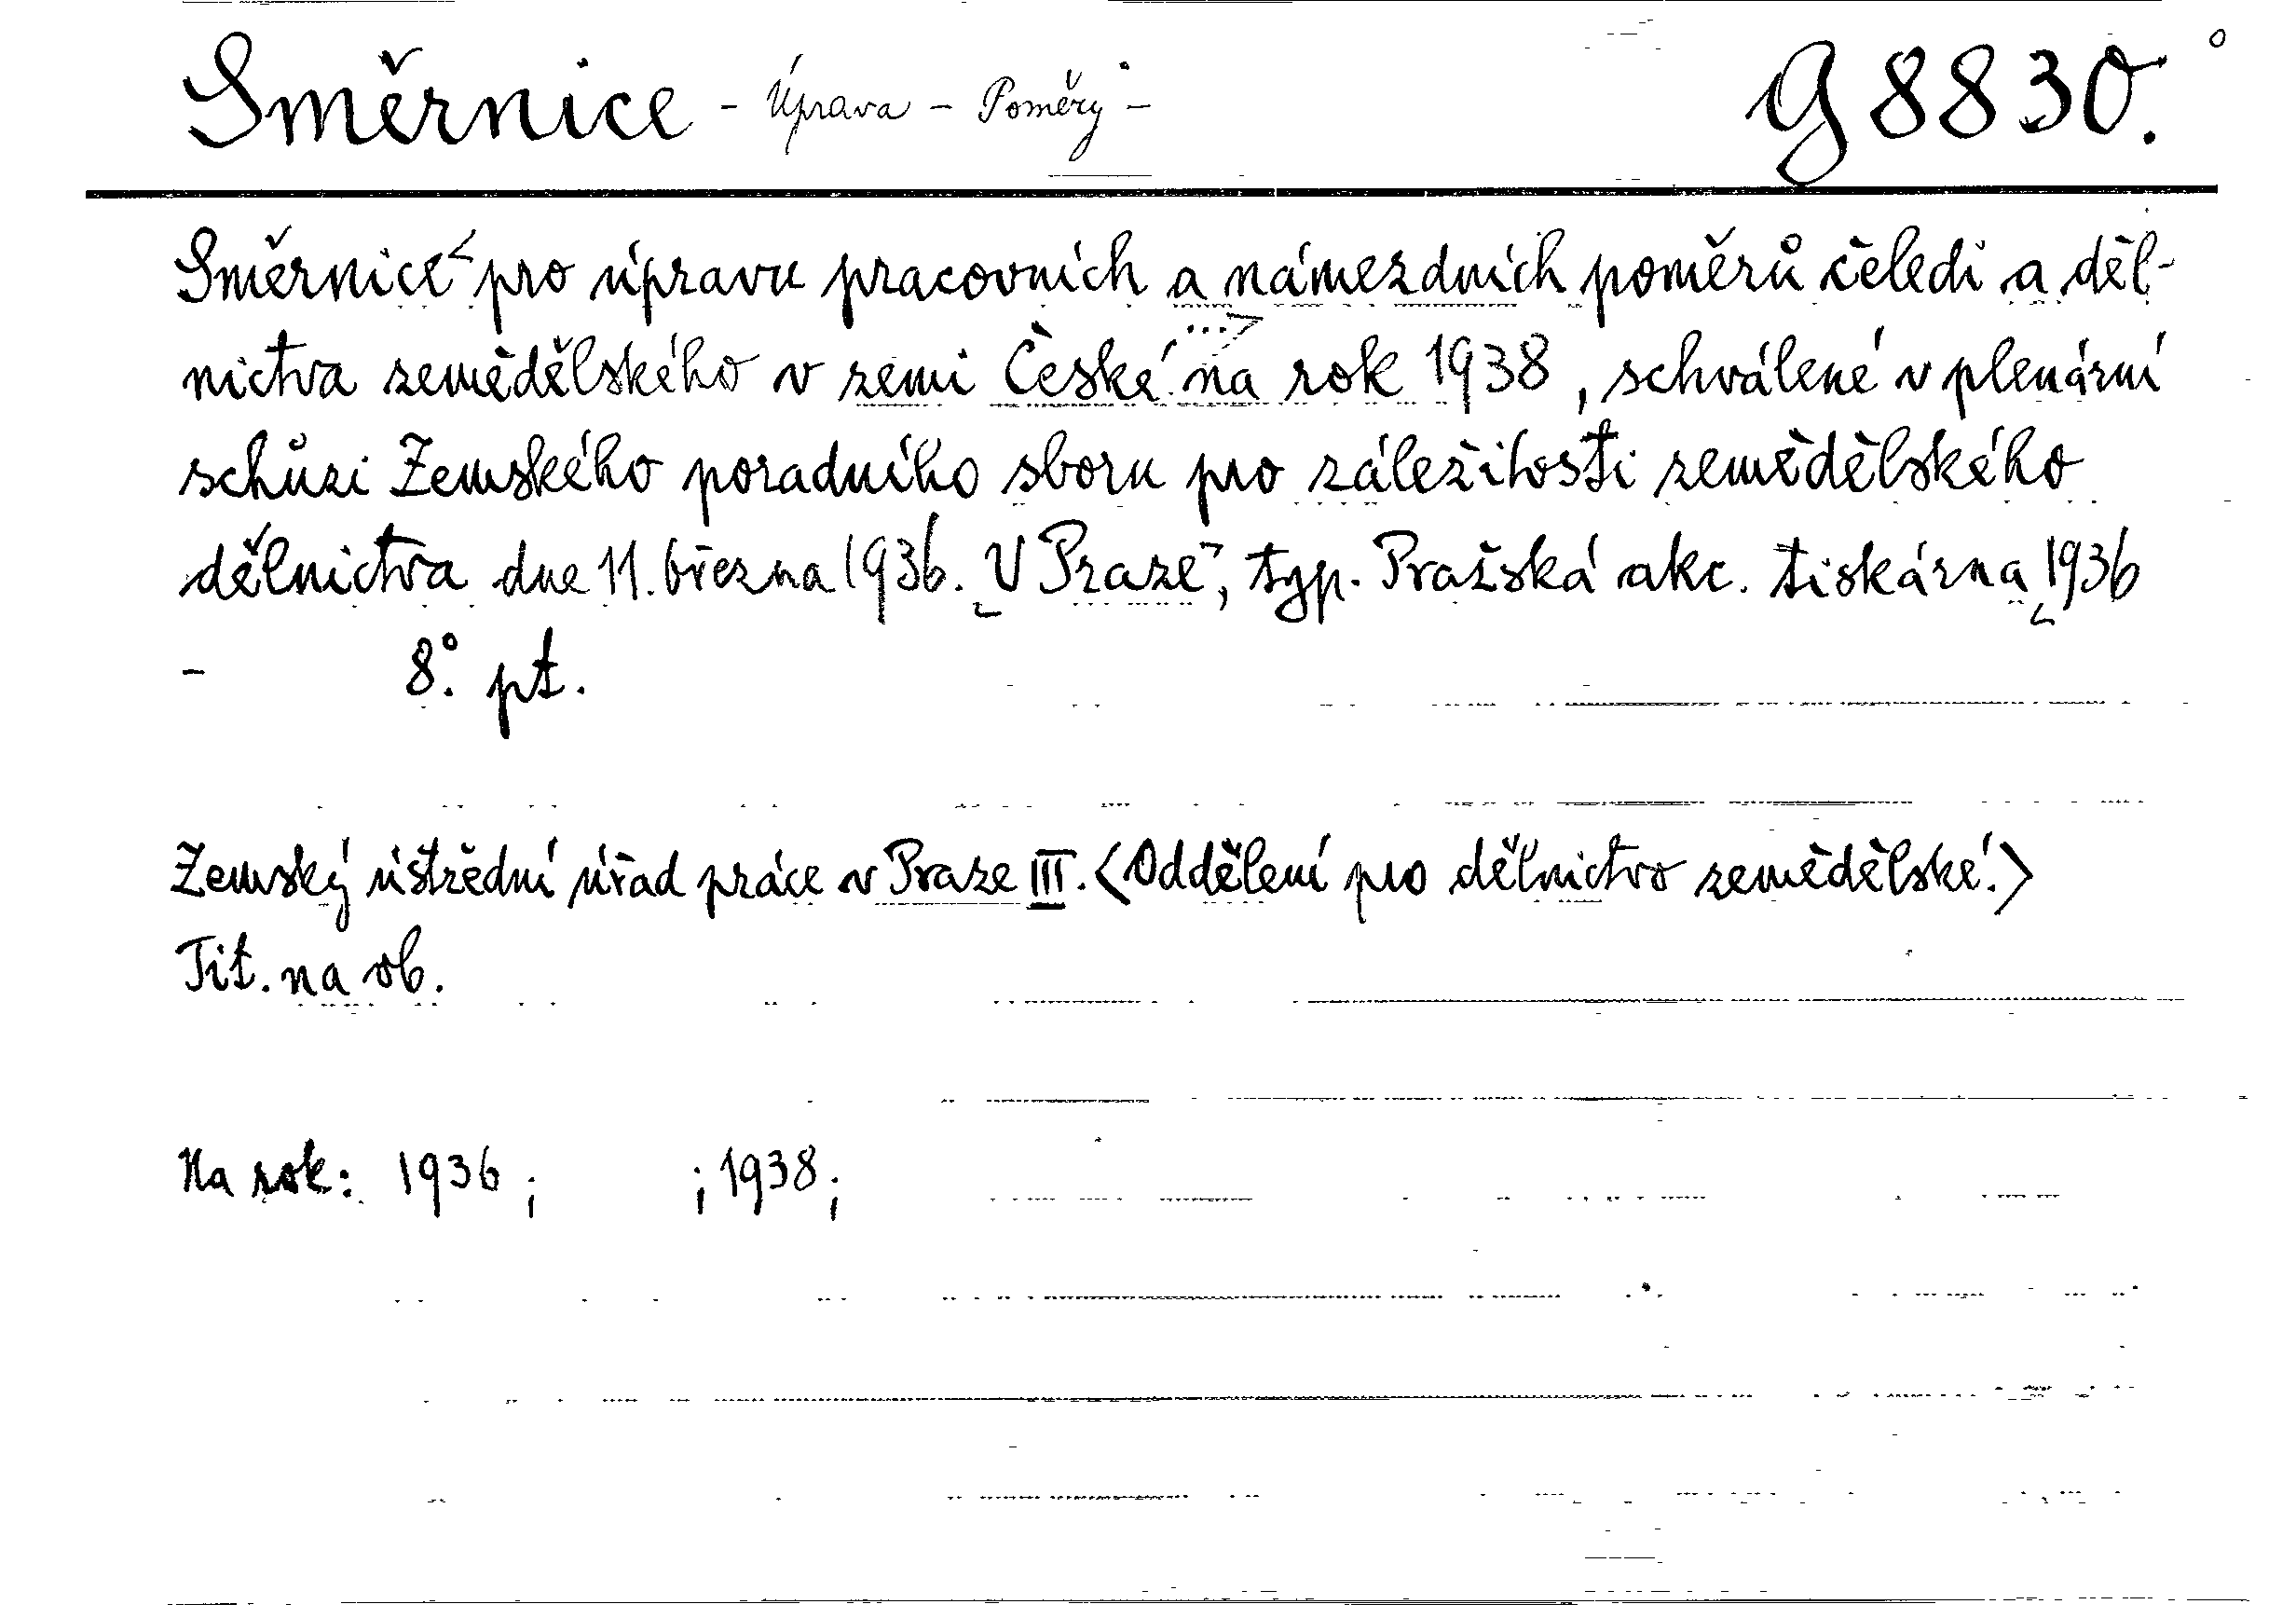 Směrnice - Úprava - Poměry - g 8830.
Směrnice< pro úpravu pracovních a námezdních poměrů čeledi a děl-
nictva zemědělského v zemi České ...> na rok 1938, schválené v plenární
schůzi Zemského poradního sboru pro záležitosti zemědělského
dělnictva dne 11. března 1936. V Praze, typ. Pražská akc. tiskárna 1936
- 8°. pt.
Zemský ústřední úřad práce v Praze III. <Oddělení pro dělnictvo zemědělské.>
Tit. na ob.
Na rok: 1936; ; 1938;